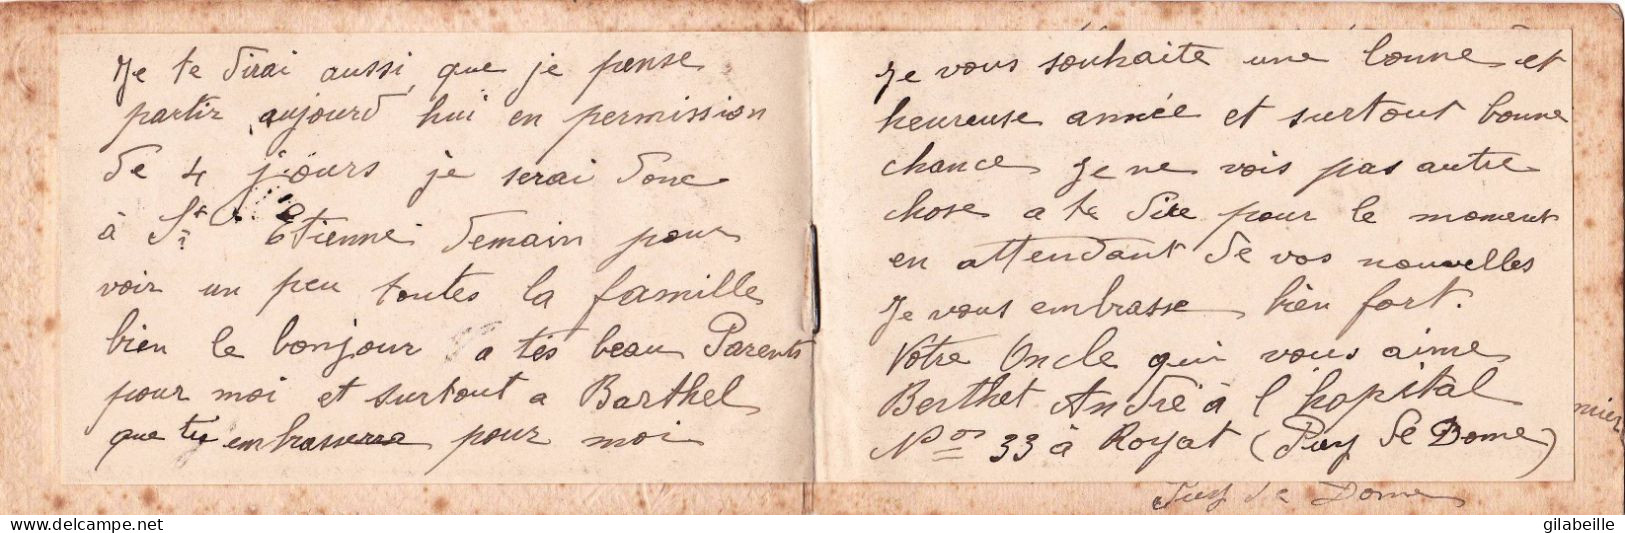 Je te dirai aussi que je pense
partir aujourd hui en permission
de 4 jours je serai donc
à St Etienne demain pour
voir un peu toutes la famille
bien le bonjour a tes beau Parents
pour moi et surtout a Barthel
que tu embrassera pour moi
Je vous souhaite une bonne et
heureuse année et surtout bonne
chance Je ne vois pas autre
chose a te dire pour le moment
en attendant de vos nouvelles
Je vous embrasse bien fort.
Votre Oncle qui vous aime
Berthet André à l hopital
Nos 33 à Royat (Puy de Dome)
Puy de Dome
mier
www.delcampe.net
gilabeille